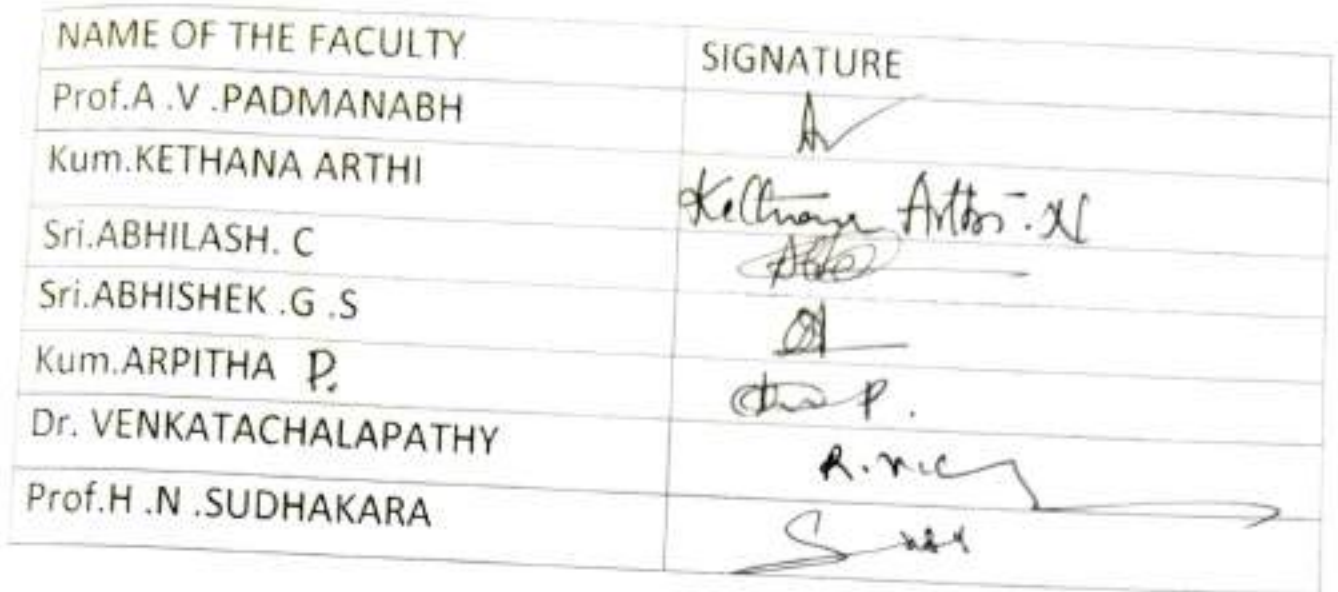 NAME OF THE FACULTY SIGNATURE
Prof.A .V .PADMANABH
Kum.KETHANA ARTHI Kethana Arthi.N
Sri.ABHILASH. C
Sri.ABHISHEK .G .S
Kum.ARPITHA P. P.
Dr. VENKATACHALAPATHY
Prof.H .N .SUDHAKARA